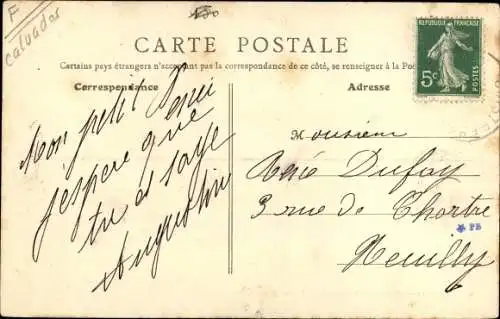 F
calvados
CARTE POSTALE
Certains pays étrangers n'acceptant pas la correspondance de ce côté, se renseigner à la Po
Correspondance
Adresse
REPUBLIQUE FRANÇAISE
5c
POSTES
Mon petit René
j'espère que
tu es sage
Augustine
Monsieur
René Dufay
3 rue de Chartre
Neuilly
PB